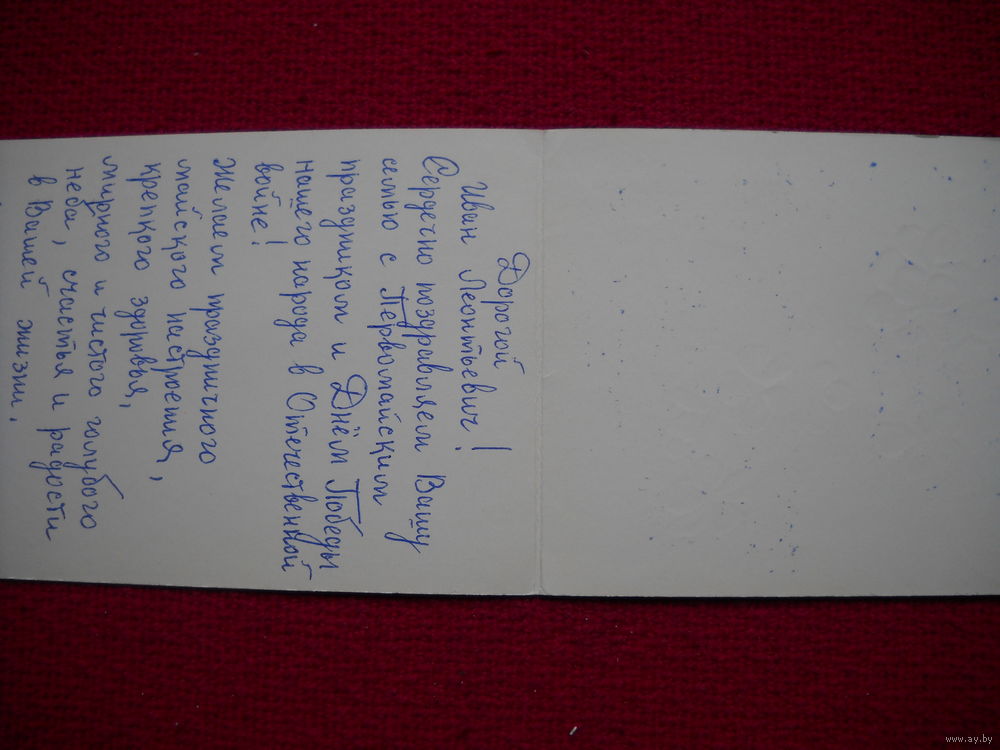 Дорогой
Иван Леонтьевич!
Сердечно поздравляем Вашу
семью с Первомайским
праздником и Днём Победы
нашего народа в Отечественной
войне!
Желаем праздничного
майского настроения,
крепкого здоровья,
мирного и чистого голубого
неба, счастья и радости
в Вашей жизни.
www.ay.by